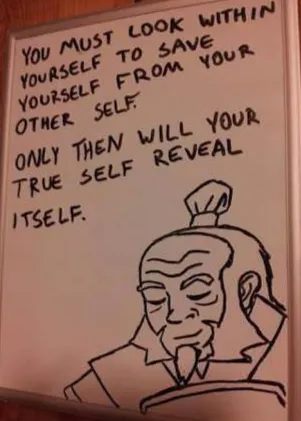 YOU MUST LOOK WITHIN
YOURSELF TO SAVE
YOURSELF FROM YOUR
OTHER SELF.
ONLY THEN WILL YOUR
TRUE SELF REVEAL
ITSELF.